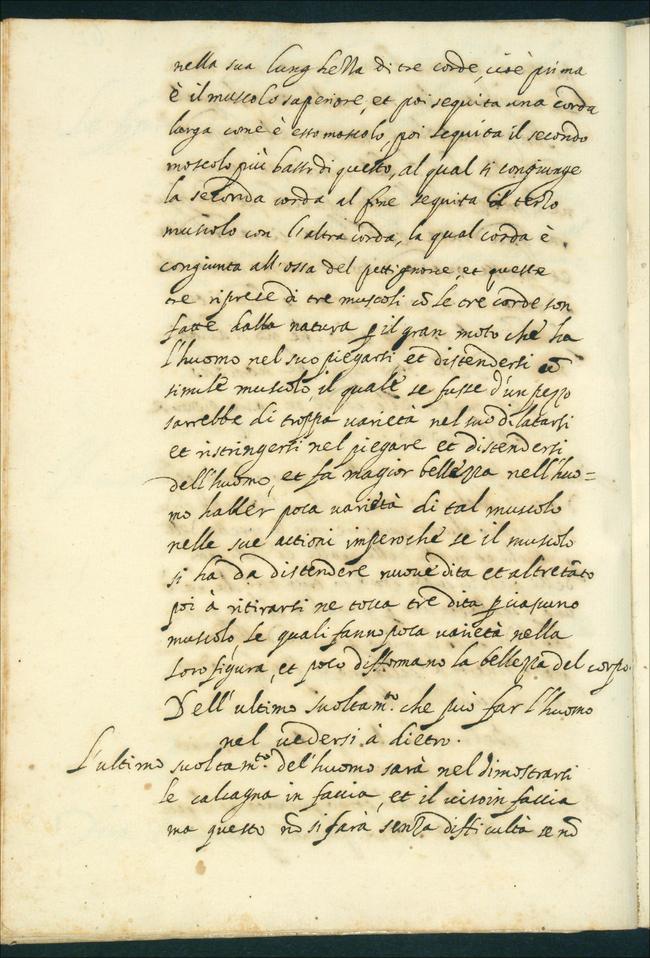 nella sua lunghezza di tre corde, cioè prima
è il muscolo superiore, et poi seguita una corda
larga come è esso moscolo, poi seguita il secondo
moscolo più basso di questo, al qual si congiunge
la seconda corda al fine seguita il terzo
muscolo con l'altra corda, la qual corda è
congiunta all'ossa del pettignone, et queste
tre riprese di tre muscoli cō le tre corde son
fatte dalla natura ꝑ il gran moto che ha
l'huomo nel suo piegarsi et distendersi cō
simile muscolo, il quale se fusse d'un pezzo
sarrebbe di troppa varietà nel suo dilatarsi
et ristringersi nel piegare et distendersi
dell'huomo, et fa magior bellezza nell'huo=
mo haller poca varietà di tal muscolo
nelle sue actioni imperoche se il muscolo
si ha da distendere nuove dita et altretāto
poi à ritirarsi ne tocca tre dita ꝑ ciascuno
muscolo, le quali fanno poca varietà nella
loro figura, et poco difformano la bellezza del corpo.
Dell'ultimo svoltam.to che può far l'huomo
nel vedersi à dietro.
L'ultimo svoltam.to del'huomo sarà nel dimostrarsi
le calcagna in faccia, et il viso in faccia
ma questo nō si farà senza difficultà se nō